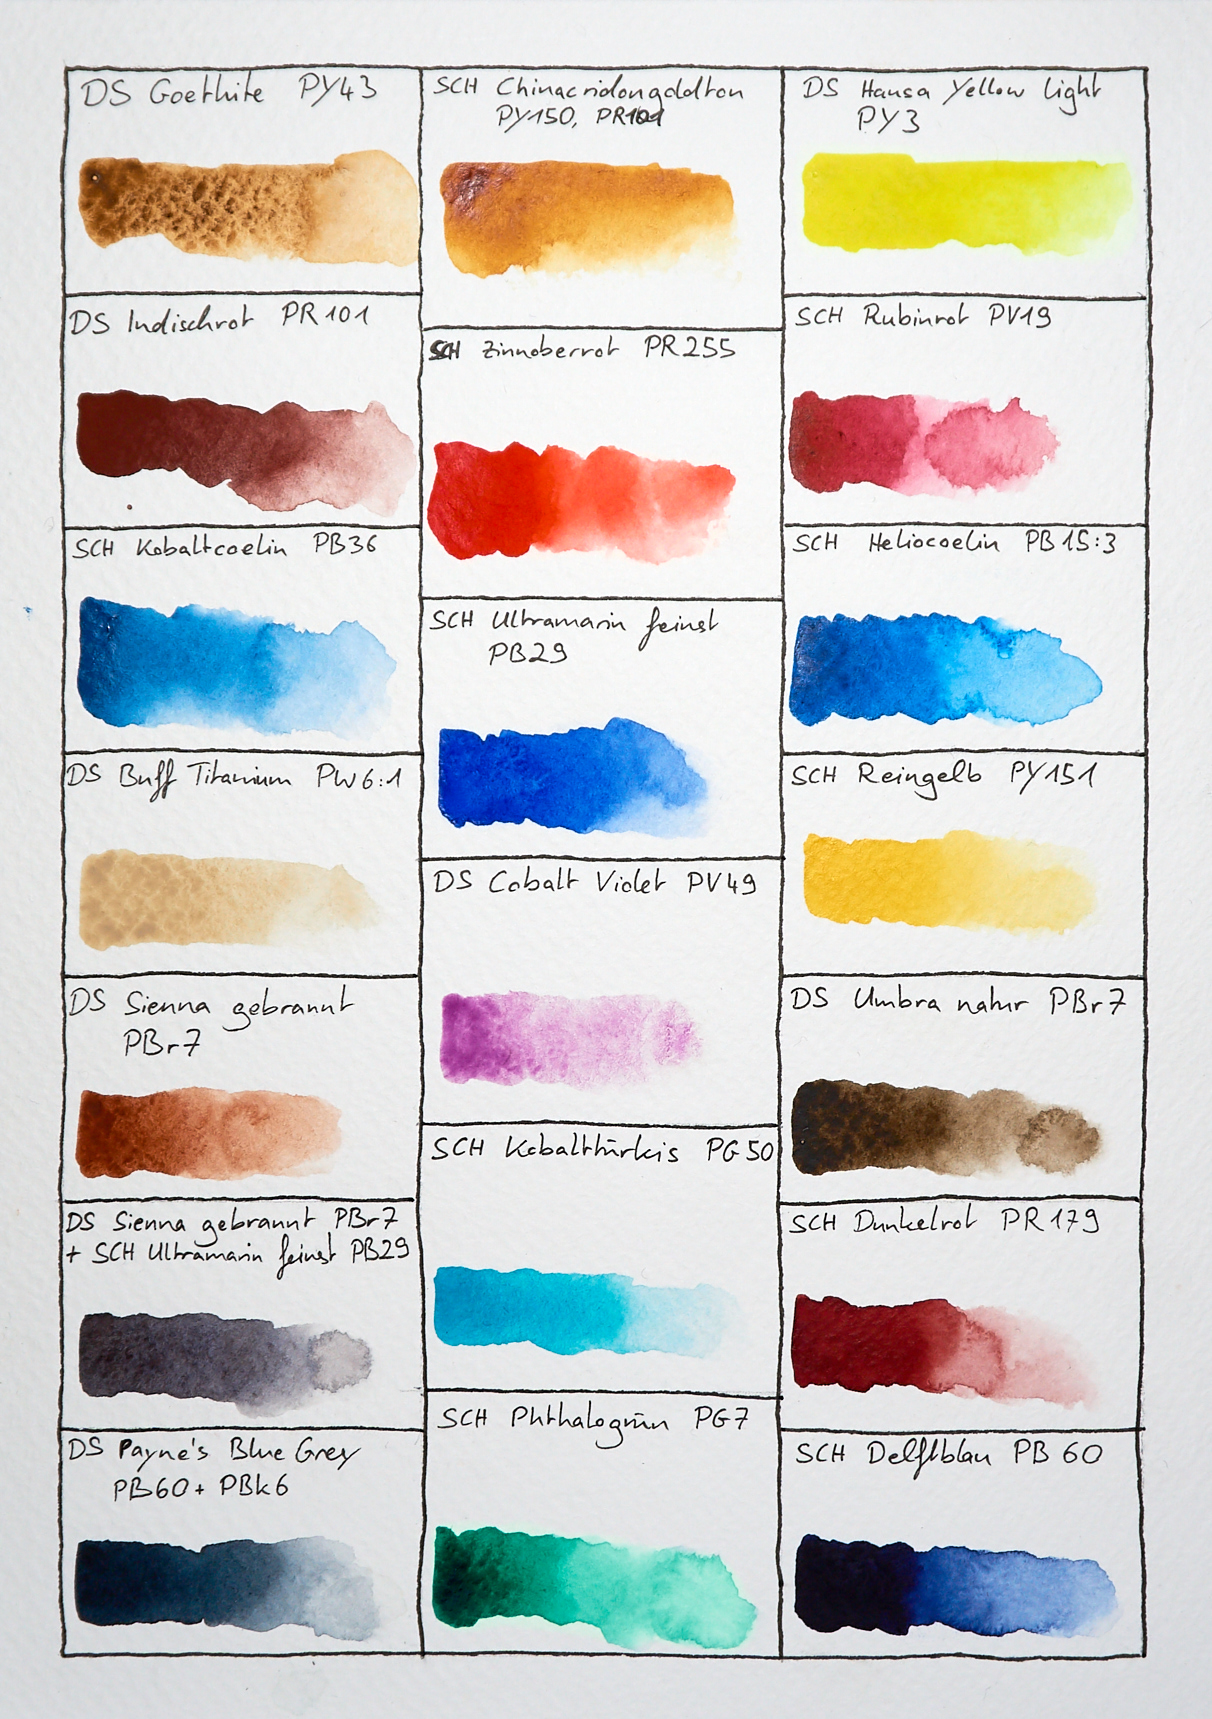 DS Goethite PY43
DS Indischrot PR101
SCH Kobaltcoelin PB36
DS Buff Titanium PW6:1
DS Sienna gebrannt
PBr7
DS Sienna gebrannt PBr7
+ SCH Ultramarin feinst PB29
DS Payne's Blue Grey
PB60+ PBk6
SCH Chinacridongoldton
PY150, PR101
SCH Zinnoberrot PR255
SCH Ultramarin feinst
PB29
DS Cobalt Violet PV49
SCH Kobalttürkis PG50
SCH Phthalogrün PG7
DS Hansa Yellow light
PY3
SCH Rubinrot PV19
SCH Heliocoelin PB15:3
SCH Reingelb PY151
DS Umbra natur PBr7
SCH Dunkelrot PR179
SCH Delftblau PB60